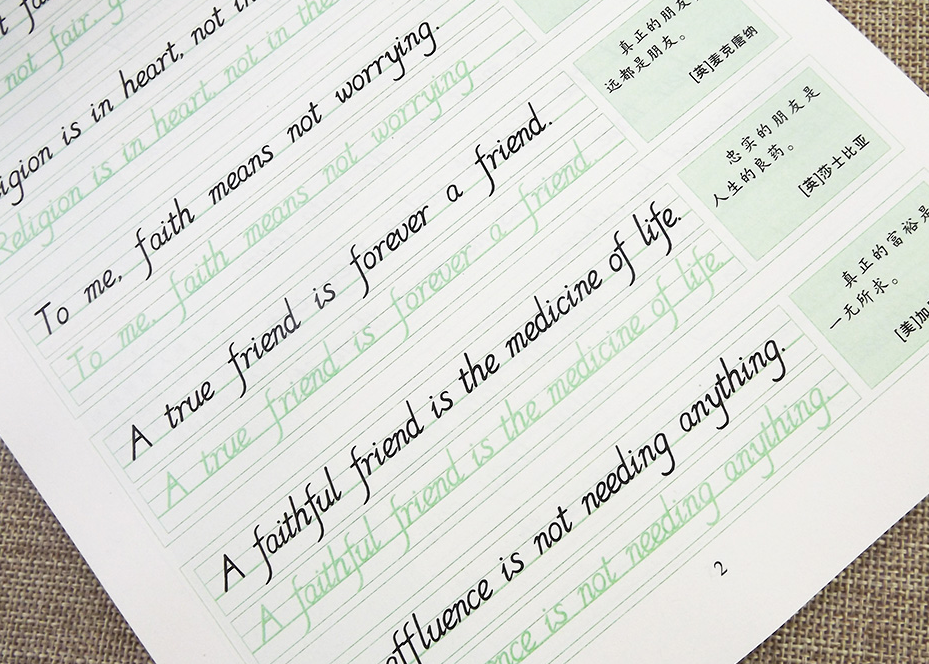 not fair. g
igion is in heart, not in
Religion is in heart, not in the
To me, faith means not worrying.
To me, faith means not worrying
A true friend is forever a friend.
A true friend is forever a friend.
A faithful friend is the medicine of life.
A faithful friend is the medicine of life.
effluence is not needing anything.
nce is not needing anything.
真正的朋友
远都是朋友。
[英]麦克唐纳
忠实的朋友是
人生的良药。
[英]莎士比亚
真正的富裕是
一无所求。
[美]加
2